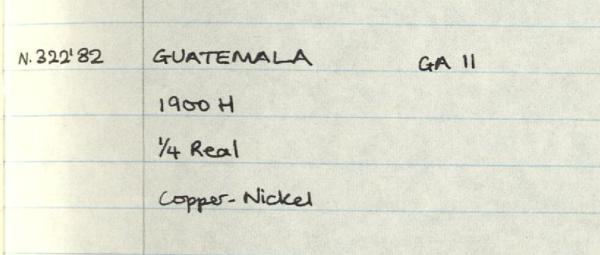 N.322'82 GUATEMALA GA 11
1900 H
1/4 Real
Copper-Nickel